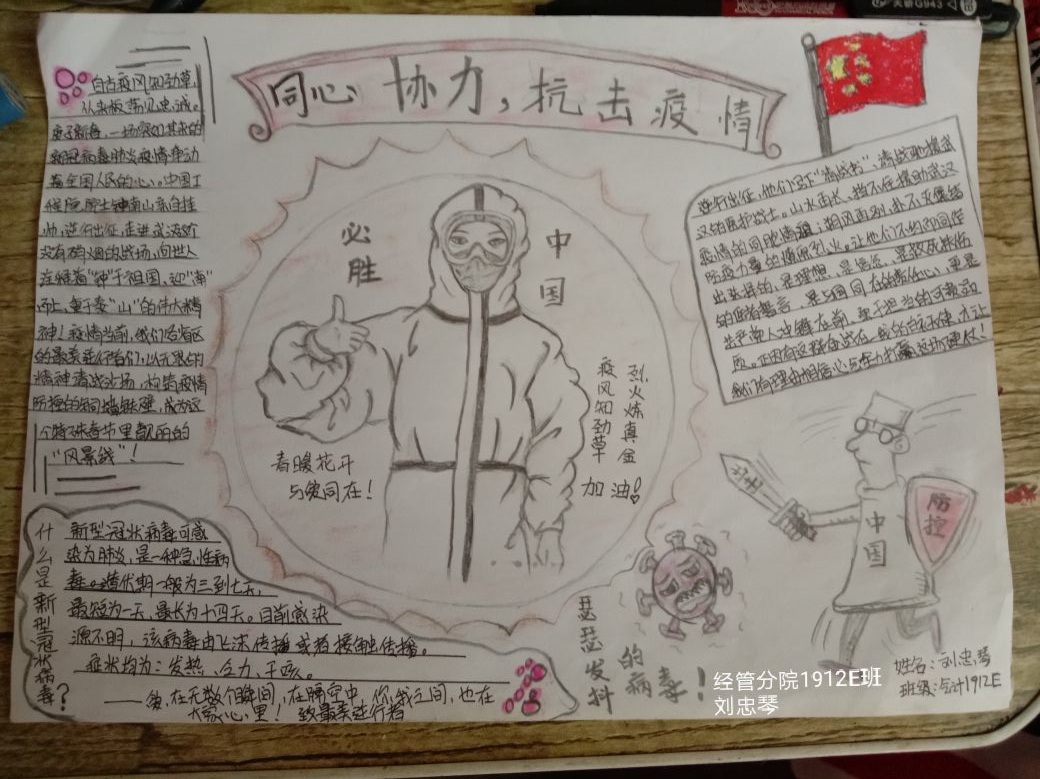 同心协力，抗击疫情
自古疫风知劲草，
从来板荡见忠诚。
庚子新春，一场突如其来的
新冠病毒肺炎疫情牵动
着全国人民的心。中国工
程院院士钟南山亲自挂
帅，逆行出征，走进武汉这个
没有硝烟的战场，向世人
在祖国，迎"南"
而上，重于泰"山"的伟大精
神！疫情当前，他们
的最美逆行者们，以无限的
精神请战沙场，构筑疫情
防控的铜墙铁壁，成为这
个特殊春节里靓丽的
"风景线"！
必胜
中国
疫风知劲草
烈火炼真金
加油！
春暖花开
与您同在！
逆行出征，他们写下"请战书"，请战驰援武
汉的医护战士。山水迢长，挡不住援助武汉
疫情的同胞情谊；
防疫力量的燎原烈火。让他们不约而同
出抉择的，是理想，是信念，是
的铮铮誓言，是的责任心，更是
共产党人冲锋在前，勇于担当的可靠品
质。正因有这群奋战在一线的白衣天使，才让
我们有理由相信心与合力打赢这场硬仗！
什么是新型冠状病毒？
新型冠状病毒可感
染为肺炎，是一种急性病
毒。潜伏期一般为三到七天，
最短为一天，最长为十四天。目前感染
源不明，该病毒由飞沫传播或者接触传播。
症状均为：发热、乏力、干咳。
——您，在无数个瞬间，在隔空中，你我之间，也在
大家心里！致最美逆行者
瑟瑟发抖
的病毒！
中国
防控
姓名：刘忠琴
班级：会计1912E
经管分院1912E班
刘忠琴